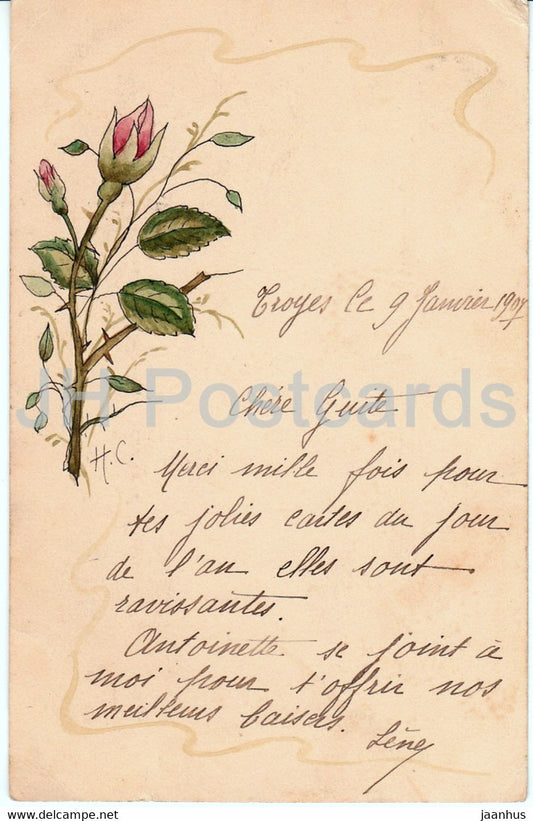 Troyes le 9 Janvier 1907
JH Postcards
Chère Guite
H.C.
Merci mille fois pour
tes jolies cartes du jour
de l'an elles sont
ravissantes.
Antoinette se joint à
moi pour t'offrir nos
meilleurs baisers.
jaanhus